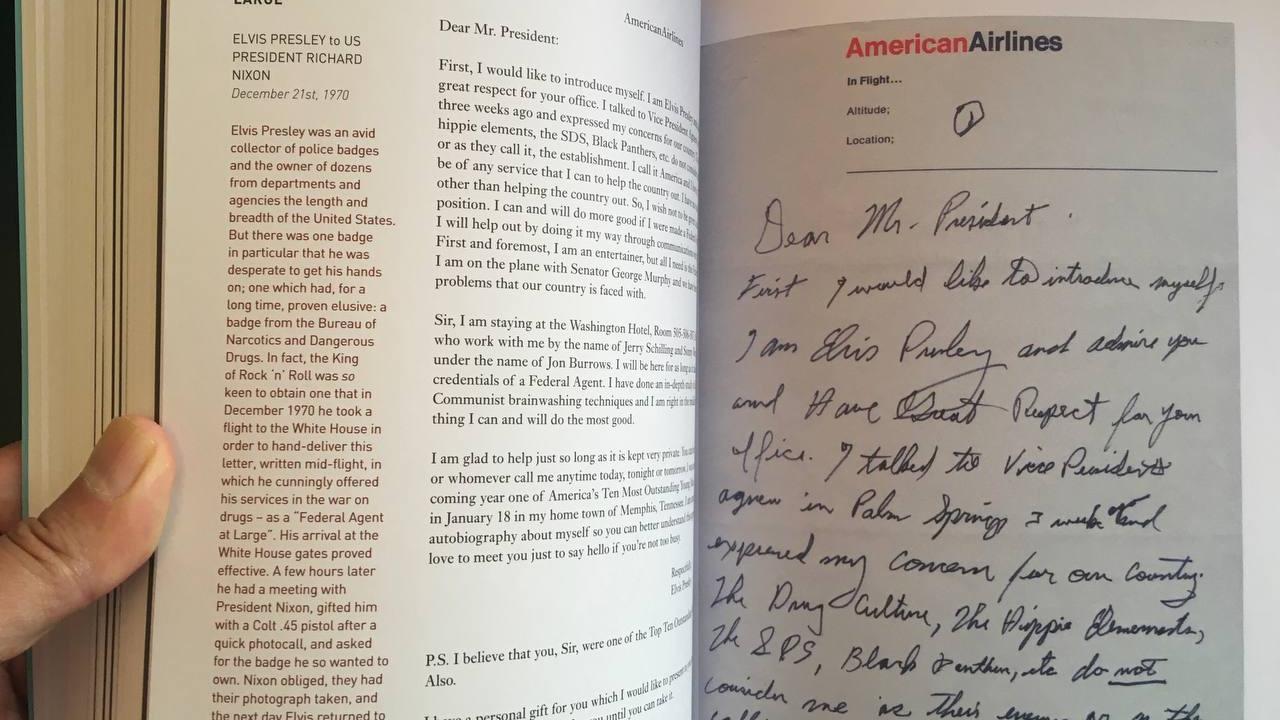 LARGE
ELVIS PRESLEY to US
PRESIDENT RICHARD
NIXON
December 21st, 1970
Elvis Presley was an avid
collector of police badges
and the owner of dozens
from departments and
agencies the length and
breadth of the United States.
But there was one badge
in particular that he was
desperate to get his hands
on; one which had, for a
long time, proven elusive: a
badge from the Bureau of
Narcotics and Dangerous
Drugs. In fact, the King
of Rock 'n' Roll was so
keen to obtain one that in
December 1970 he took a
flight to the White House in
order to hand-deliver this
letter, written mid-flight, in
which he cunningly offered
his services in the war on
drugs – as a “Federal Agent
at Large”. His arrival at the
White House gates proved
effective. A few hours later
he had a meeting with
President Nixon, gifted him
with a Colt .45 pistol after a
quick photocall, and asked
for the badge he so wanted to
own. Nixon obliged, they had
their photograph taken, and
the next day Elvis returned to
AmericanAirlines
Dear Mr. President:
First, I would like to introduce myself. I am Elvis Presley
great respect for your office. I talked to Vice President
three weeks ago and expressed my concerns for our
hippie elements, the SDS, Black Panthers, etc. do not
or as they call it, the establishment. I call it America and
be of any service that I can to help the country out. I
other than helping the country out. So, I wish not to be
position. I can and will do more good if I were made a
I will help out by doing it my way through communications
First and foremost, I am an entertainer, but all I need is
I am on the plane with Senator George Murphy and we
problems that our country is faced with.
Sir, I am staying at the Washington Hotel, Room 505-506
who work with me by the name of Jerry Schilling and
under the name of Jon Burrows. I will be here for as long
credentials of a Federal Agent. I have done an in-depth
Communist brainwashing techniques and I am right in the
thing I can and will do the most good.
I am glad to help just so long as it is kept very private. You
or whomever call me anytime today, tonight or tomorrow.
coming year one of America's Ten Most Outstanding Young
in January 18 in my home town of Memphis, Tennessee.
autobiography about myself so you can better understand
love to meet you just to say hello if you're not too busy.
Respectfully
Elvis Presley
P.S. I believe that you, Sir, were one of the Top Ten Outstanding
Also.
I have a personal gift for you which I would like to present
you until you can take it.
AmericanAirlines
In Flight...
Altitude;
Location;
Dear Mr. President.
First I would like to introduce myself.
I am Elvis Presley and admire you
and Have Great Respect for your
office. I talked to Vice President
agnew in Palm Springs 3 weeks and
expressed my concern for our country.
The Drug Culture, The Hippie Elements,
The SDS, Black Panthers, etc do not
consider me as their enemy or as they